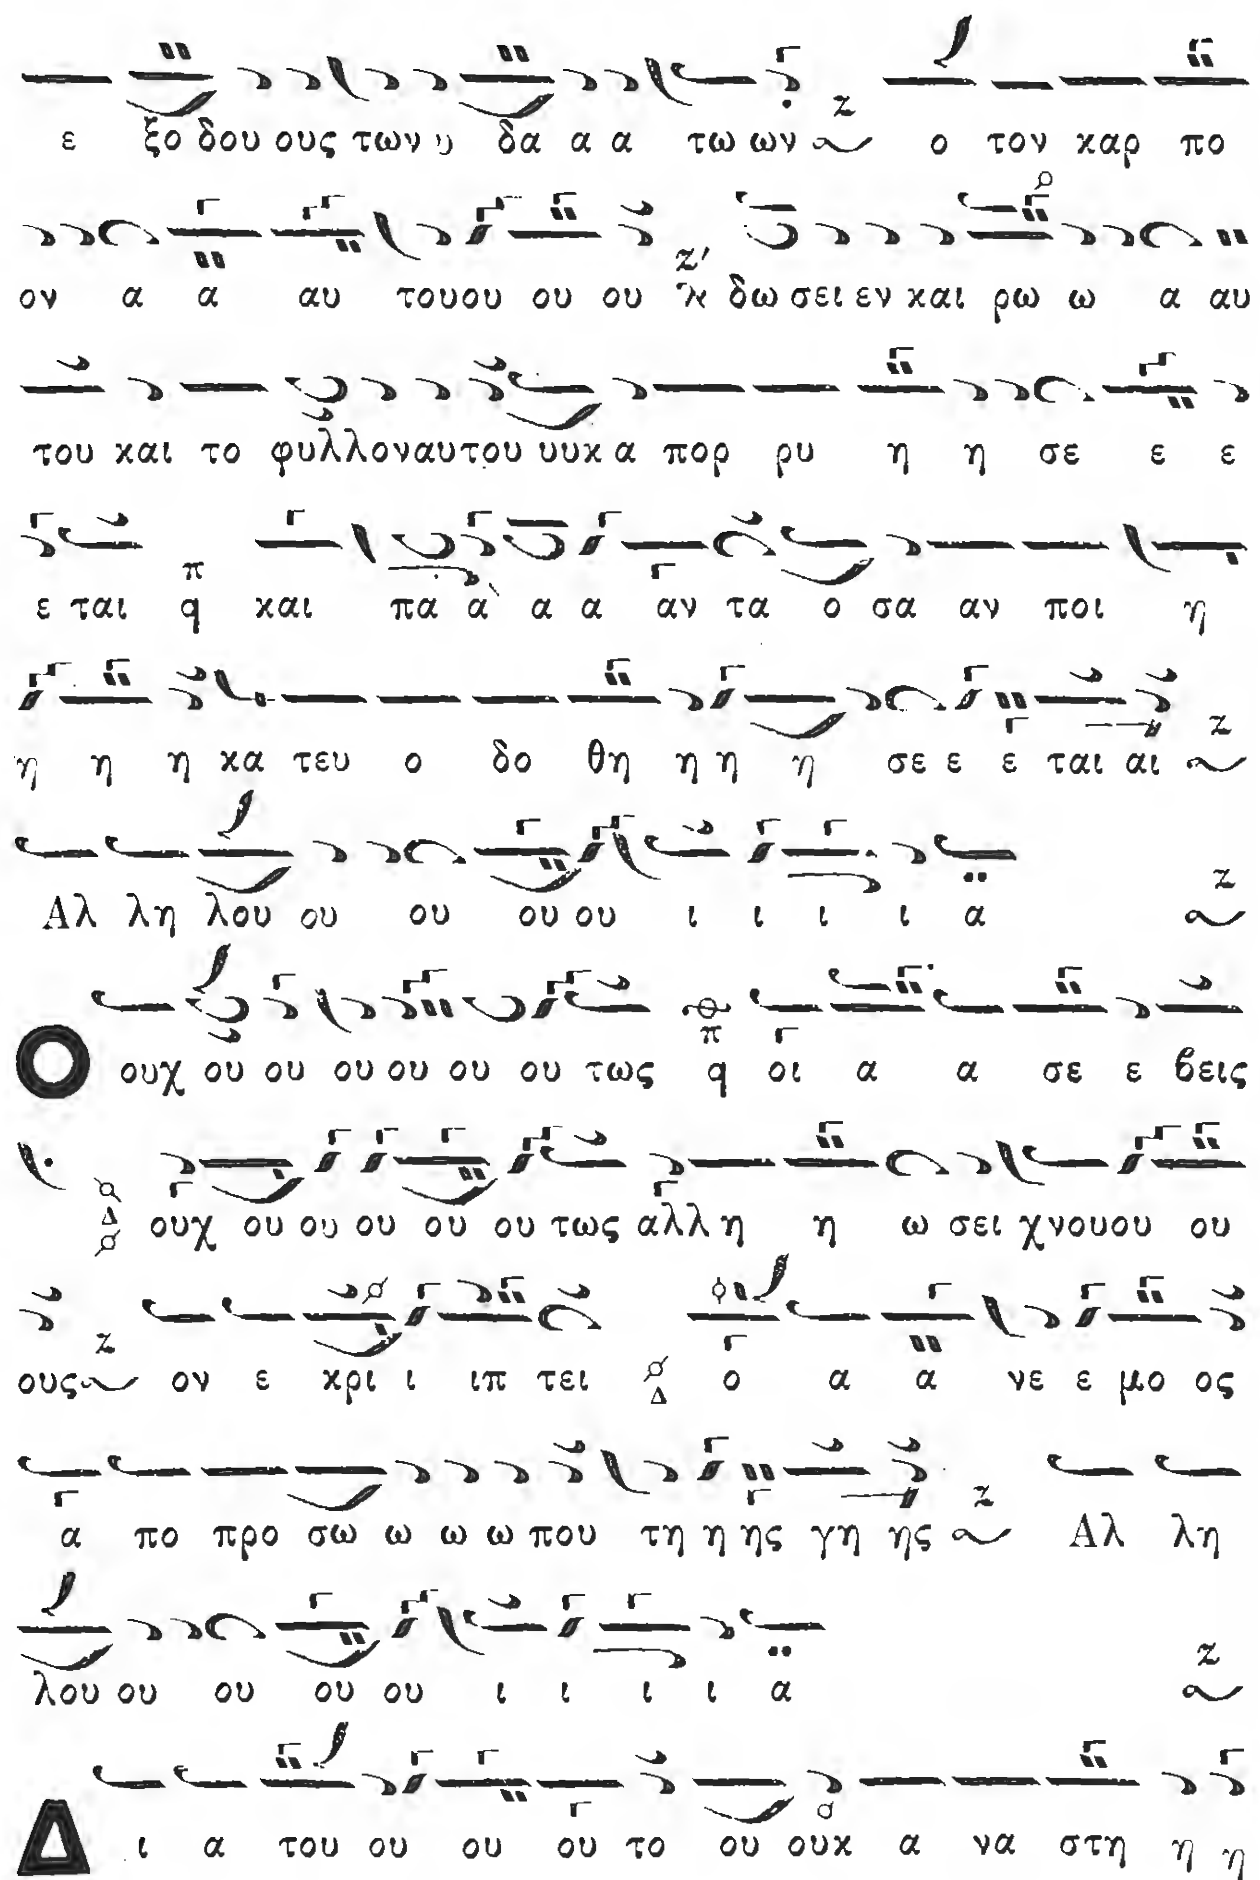 ε ξο δου ους των υ δα α α τω ων Ζ ο τον καρ πο
ον α α αυ του ου ου ου Ζ' ϗ δω σει εν και ρω ω α αυ
του και το φυλλον αυτου ουκ α πορ ρυ η η σε ε ε
ε ται π q και πα α α α αν τα ο σα αν ποι η
η η η κα τευ ο δο θη η η η σε ε ε ται αι Ζ
Αλ λη λου ου ου ου ου ι ι ι ι α Ζ
Ο ουχ ου ου ου ου ου ου τως π q οι α α σε ε βεις
Δ ουχ ου ου ου ου ου τως αλλ η η ω σει χνουου ου
ους Ζ ον ε κρι ι ιπ τει Δ ο α α νε ε μο ος
α πο προ σω ω ω ω που τη η ης γη ης Ζ Αλ λη
λου ου ου ου ου ι ι ι ι α Ζ
Δ ι α του ου ου ου το ου ουκ α να στη η η